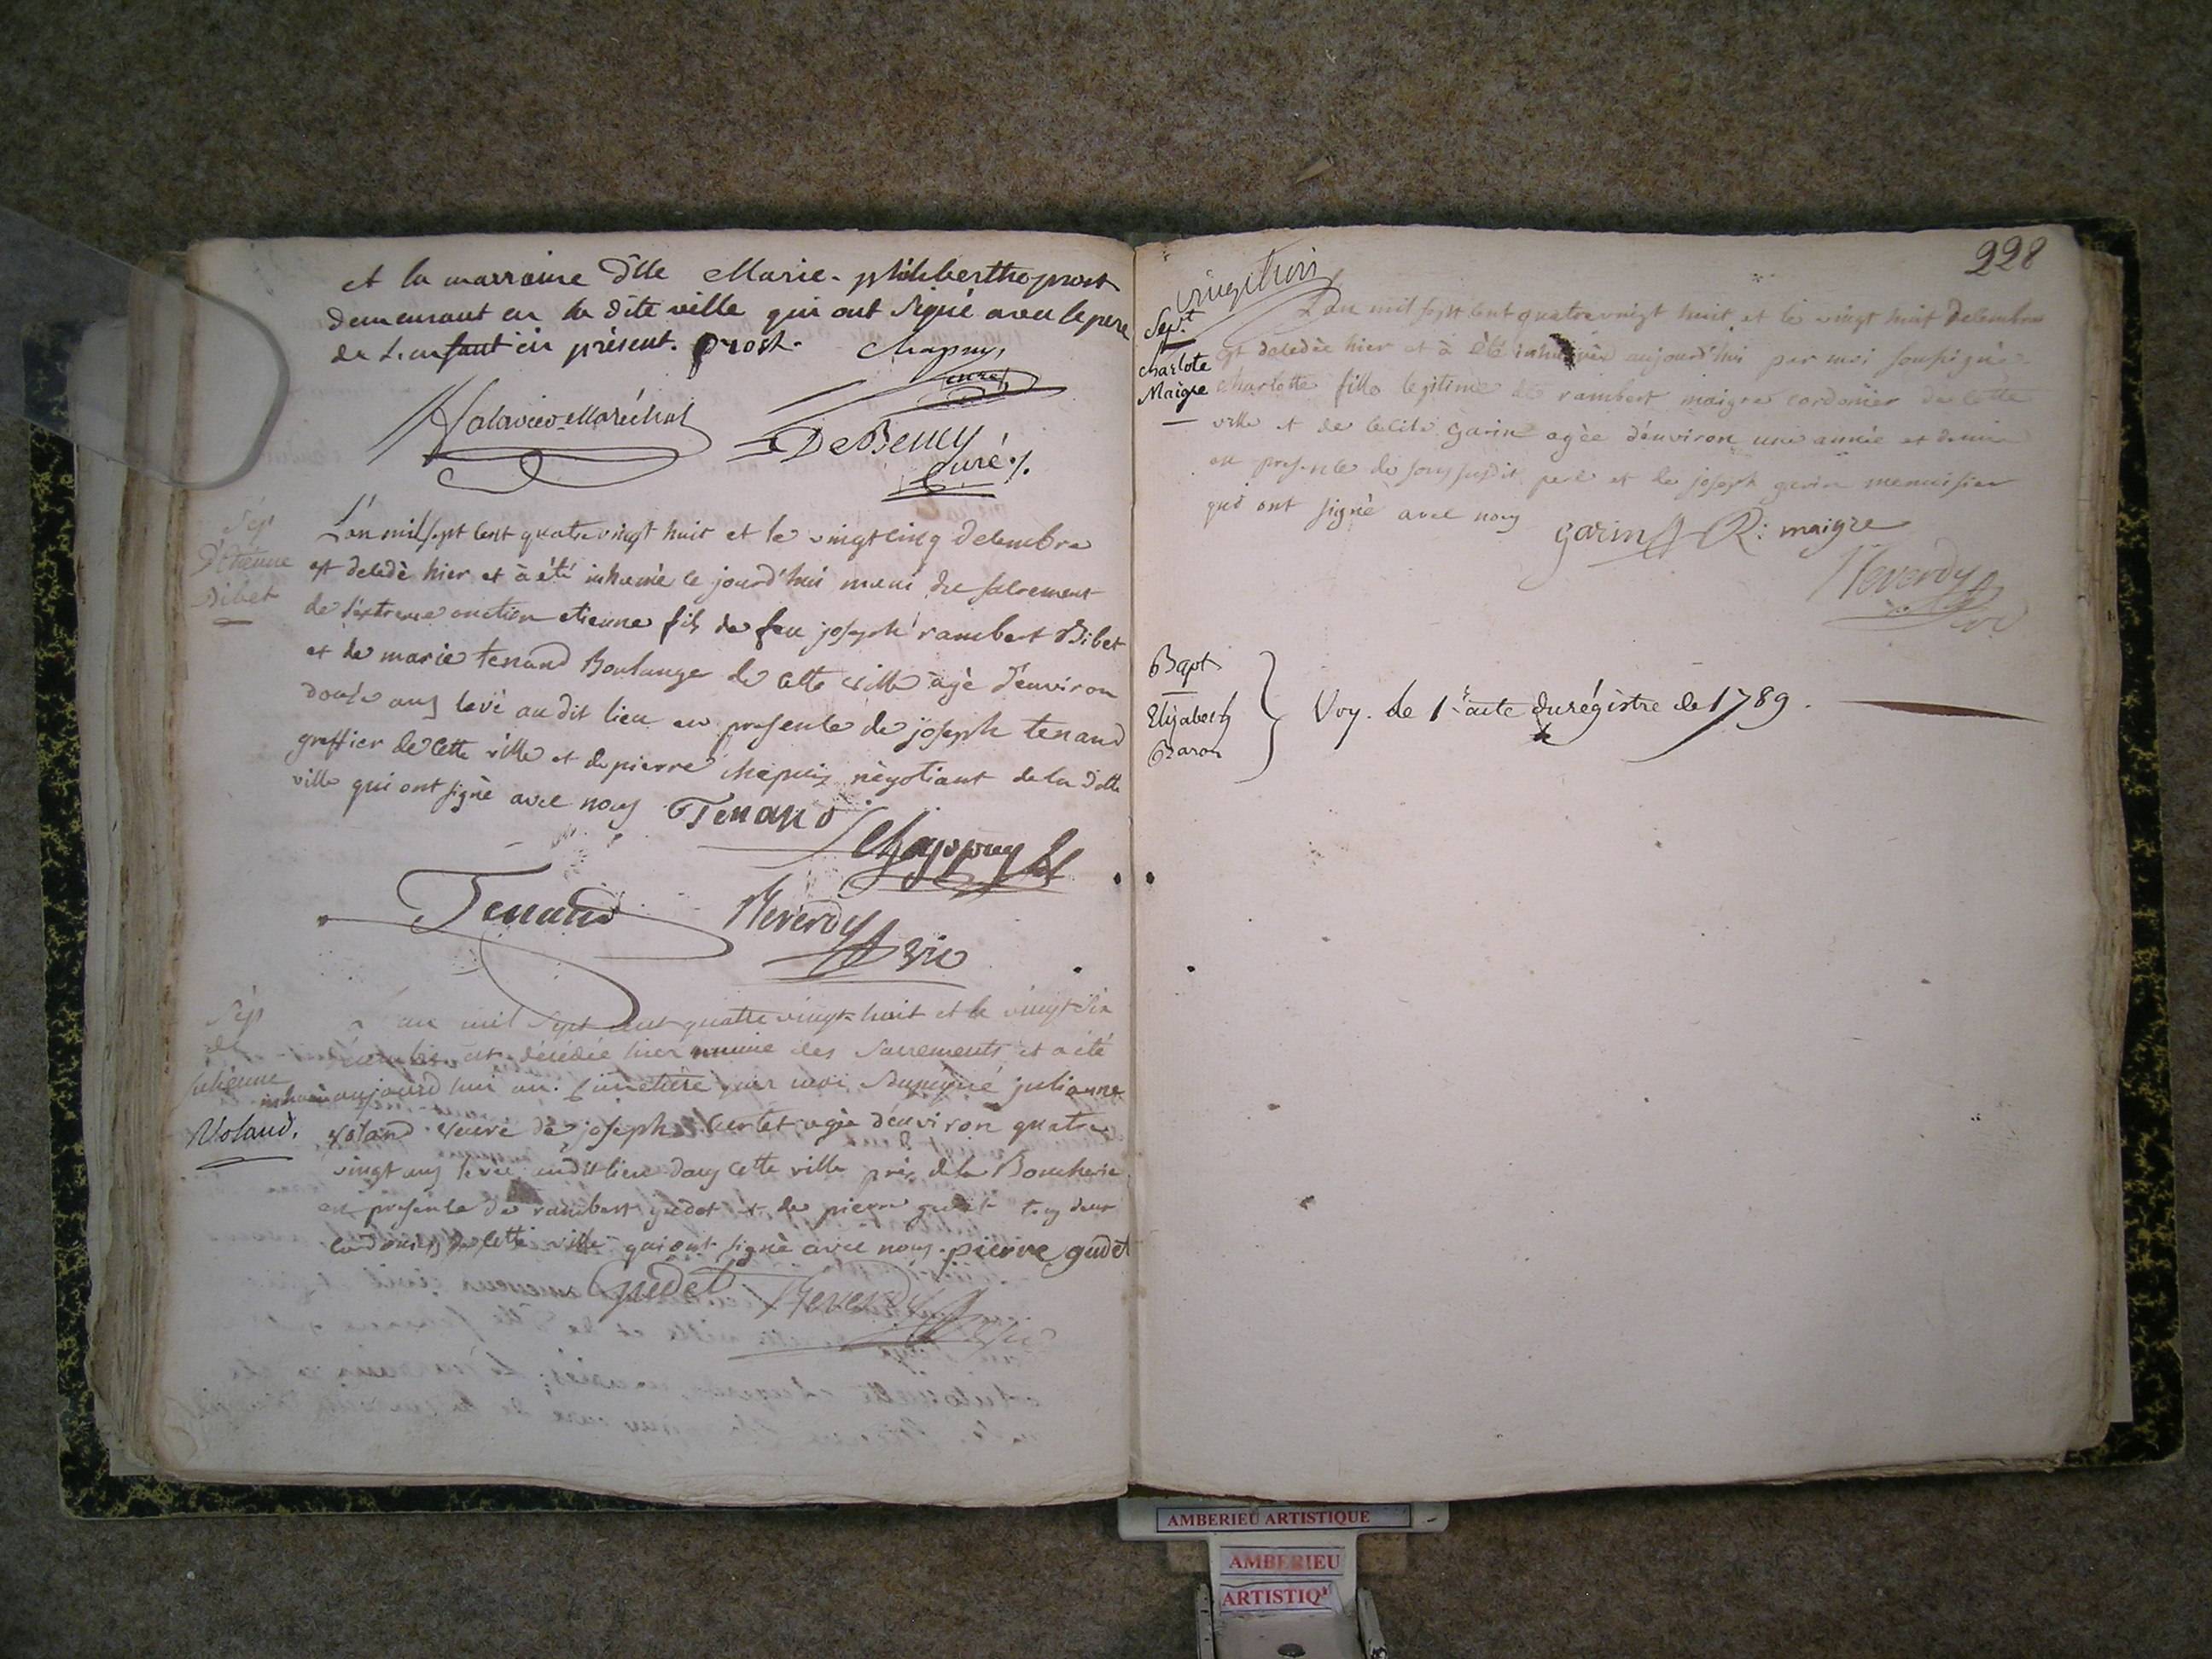 et la marraine Dlle Marie-philiberthe prost
demeurant en la dite ville qui ont signé avec le pere
de L'enfant ici présent. Prost. Chapuy,
curé
Maréchal DeBeney
Curé
Sép
D'Etienne
Bibet
L'an mil sept cent quatre vingt huit et le vingt cinq decembre
est decedé hier et à été inhumé ce jourd'hui muni du sacrement
de l'extreme onction etienne fils de feu joseph rambert Bibet
et de marie tenand Boulanger de cette ville agé d'environ
douze ans levé audit lieu en presence de joseph tenand
greffier de cette ville et de pierre chapuis négotiant de la ditte
ville qui ont signé avec nous Tenand
Chappuy
Tenand Reverdy vic
Sép
de
julienne
Voland.
L'an mil sept cent quatre vingt huit et le vingt six
decembre est décédée hier munie des Sacrements et a été
inhumée aujourd'hui au cimetière par moi soussigné julianne
voland veuve de joseph agée d'environ quatre
vingt ans levée audit lieu dans cette ville près de la Boucherie
en presence de rambert gudet et de pierre gudet tous deux
cordoniers de cette ville qui ont signé avec nous. pierre gudet
gudet Reverdy vic
228
vingt huit
Sept
charlote
Maigre
L'an mil sept cent quatre vingt huit et le vingt huit decembre
est decedée hier et à été inhumée aujourd'hui par moi soussigné
charlotte fille legitime de rambert maigre cordonier de cette
ville et de garin agée d'environ une année et demie
en presence de son susdit pere et de joseph garin menuisier
qui ont signé avec nous garin R: maigre
Reverdy vic
Bapt
Elizabeth
Baron
Voy. le 1er acte du régistre de 1789.
AMBERIEU ARTISTIQUE
AMBERIEU
ARTISTIQ